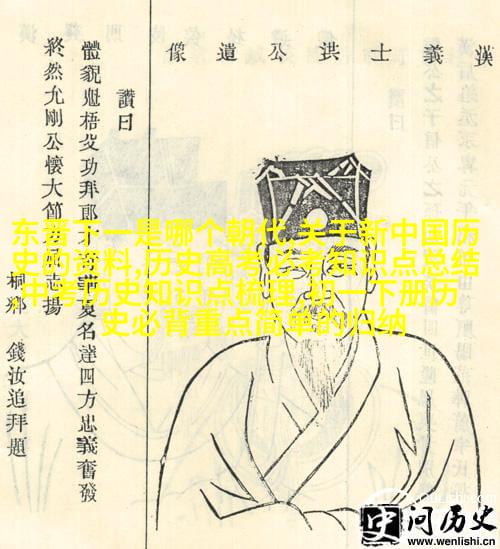 漢義士洪公遺像
讚曰
體貌魁梧 功拜郎才 華夏名達四方忠義奮發
終然允剛公懷大節 志揚
桐鄉 錢汝追拜題
东晋下一是哪个朝代,关于新中国历
史的资料,历史高考必考知识点总结
,中考历史知识点梳理,初一下册历
史必背重点简单的归纳
史问历史
www.wenlishi.cn